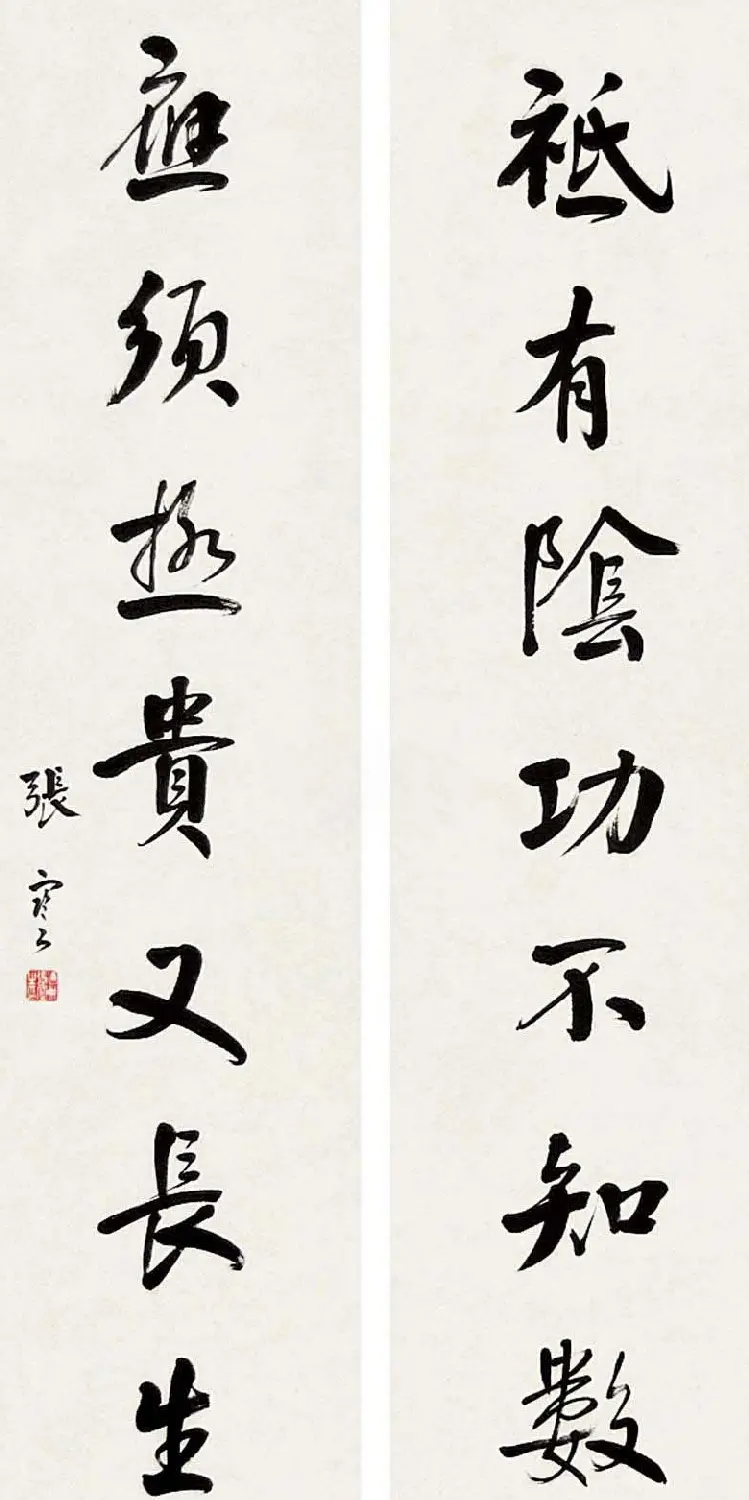 祗有陰功不知數
應須極貴又長生
張寒雲